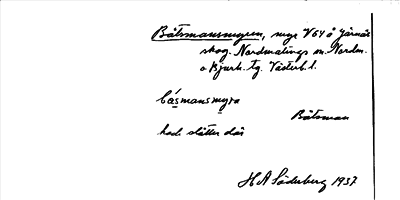 Båtsmansmyren, myr V64 å Järnäs
skog. Nordmalings sn. Nordm.
o Bjurh. tg. Västerb. l.
båsmansmyra
Båtsman
had slåtter där
H A Söderberg 1937